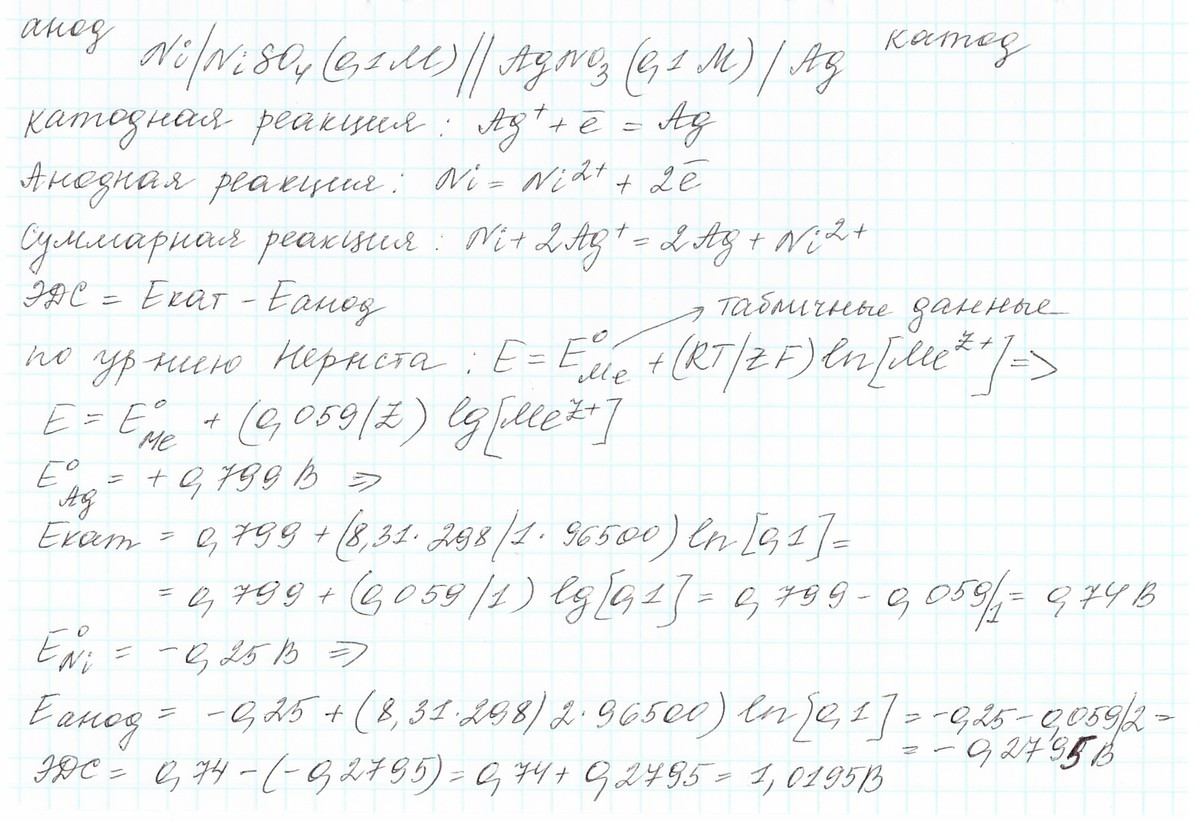 анод Ni/NiSO₄ (0,1 М) // AgNO₃ (0,1 М) / Ag катод
катодная реакция : Ag⁺ + ē = Ag
Анодная реакция : Ni = Ni²⁺ + 2ē
Суммарная реакция : Ni + 2Ag⁺ = 2Ag + Ni²⁺
ЭДС = Екат - Еанод
табличные данные
по ур-нию Нернста : E = E°Me + (RT/zF) ln[Meᶻ⁺] =>
E = E°Me + (0,059/z) lg[Meᶻ⁺]
E°Ag = + 0,799 В =>
Екат = 0,799 + (8,31 · 298/1 · 96500) ln [0,1] =
= 0,799 + (0,059/1) lg[0,1] = 0,799 - 0,059/1 = 0,74 В
E°Ni = -0,25 В =>
Еанод = -0,25 + (8,31·298/2·96500) ln [0,1] = -0,25 - 0,059/2 =
= - 0,2795 В
ЭДС = 0,74 - (-0,2795) = 0,74 + 0,2795 = 1,0195 В